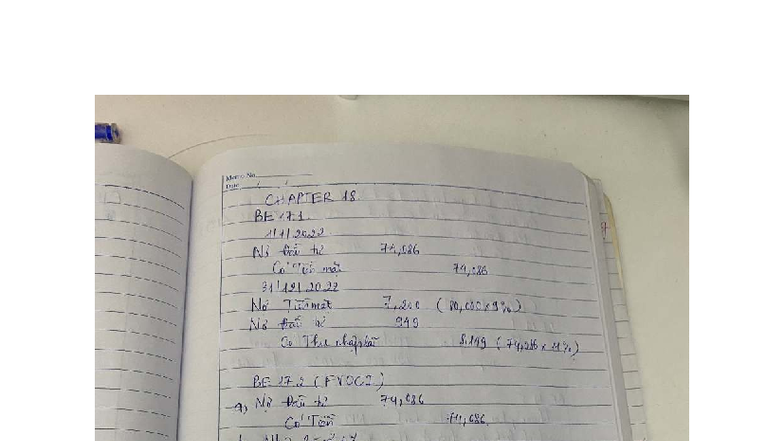 Memo No.
Date / /
CHAPTER 18
BE 17.1
1/1/2022
Nợ Đầu tư 74,086
Có Tiền mặt 74,086
31/12/2022
Nợ Tiền mặt 7,200 (80,000x9%)
Nợ Đầu tư 949
Có Thu nhập lãi 8,149 (74,086 x 11%)
BE 17.2 (FVOCI)
a, Nợ Đầu tư 74,086
Có Tiền 74,086